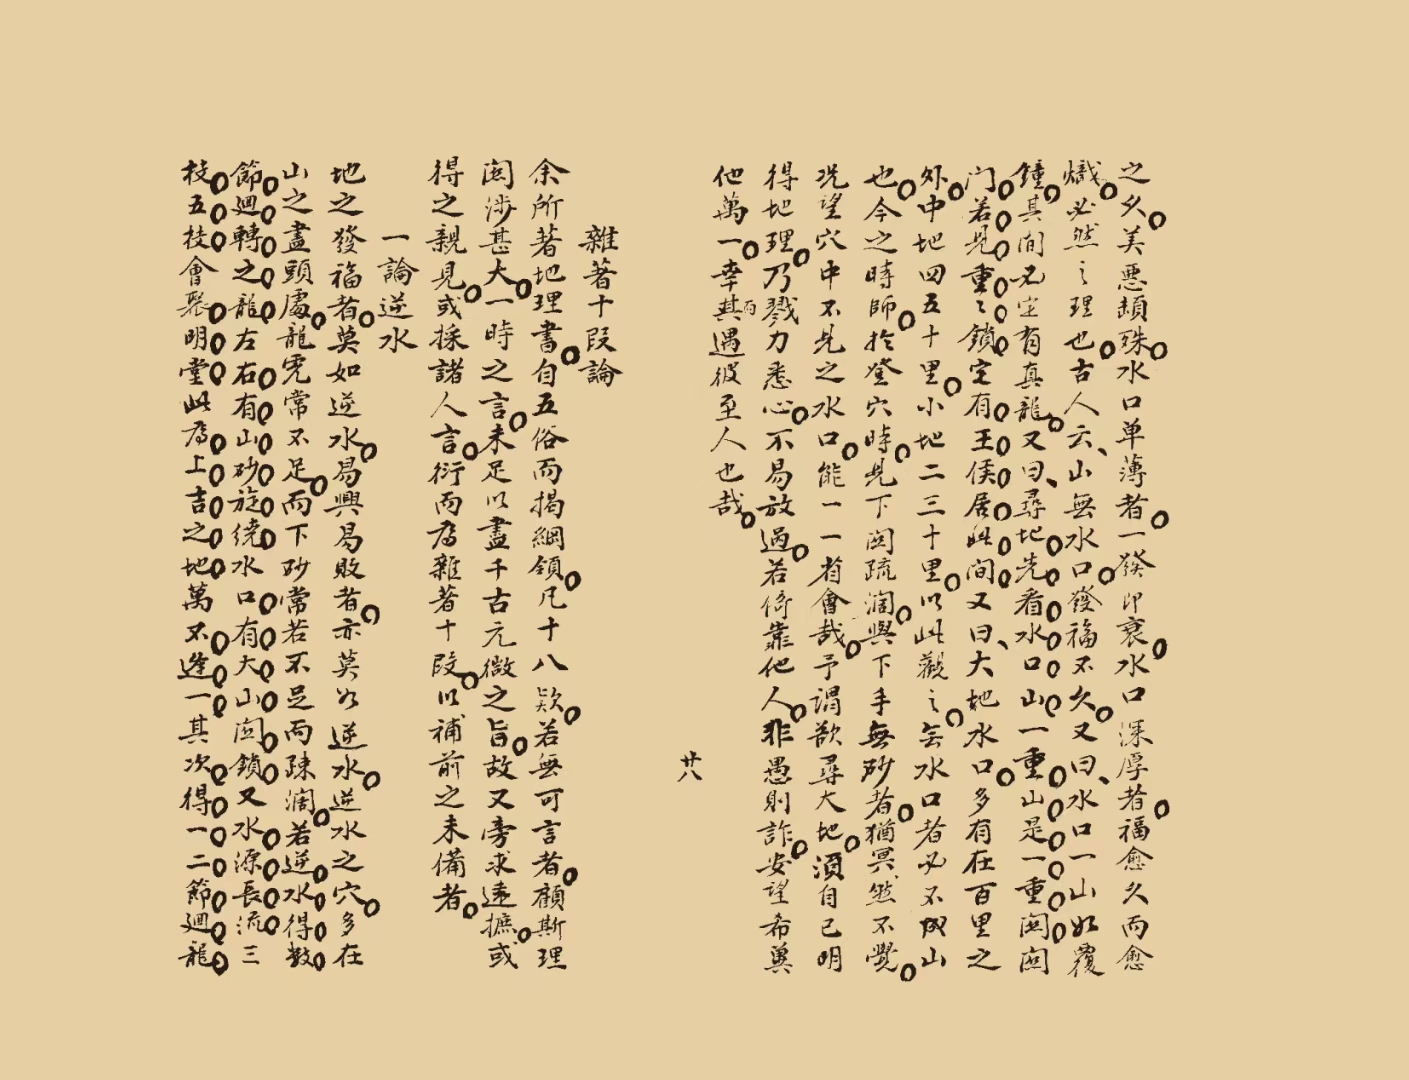 之久美惡頓殊水口单薄者一發即衰水口深厚者福愈久而愈
熾必然之理也古人云山無水口發福不久又曰水口一山如覆
鐘其間必定有真龍又曰尋地先看水口山一重山是一重関関
门若見重々鎖定有王侯居此间又曰大地水口多有在百里之
外中地四五十里小地二三十里以此觀之無水口者必不成山
也今之時師於登穴時見下関疏濶與下手無砂者猶冥然不覺
况望穴中不見之水口能一一省會哉予謂欲尋大地須自己明
得地理乃戮力悉心不易放過若倚靠他人非愚則詐安望希冀
他萬一幸其而遇彼至人也哉
廿八
雜著十段論
余所著地理書自五俗而揭綱領凡十八欵若無可言者顧斯理
関涉甚大一時之言未足以盡千古元微之旨故又旁求遠摭或
得之親見或採諸人言衍而為雜著十段以補前之未備者
一論逆水
地之發福者莫如逆水易興易敗者亦莫如逆水逆水之穴多在
山之盡頭處龍虎常不足而下砂常若不足而疎濶若逆水得数
節廻轉之龍左右有山砂旋繞水口有大山関鎖又水源長流三
枝五枝會聚明堂此為上吉之地萬不逢一其次得一二節廻龍